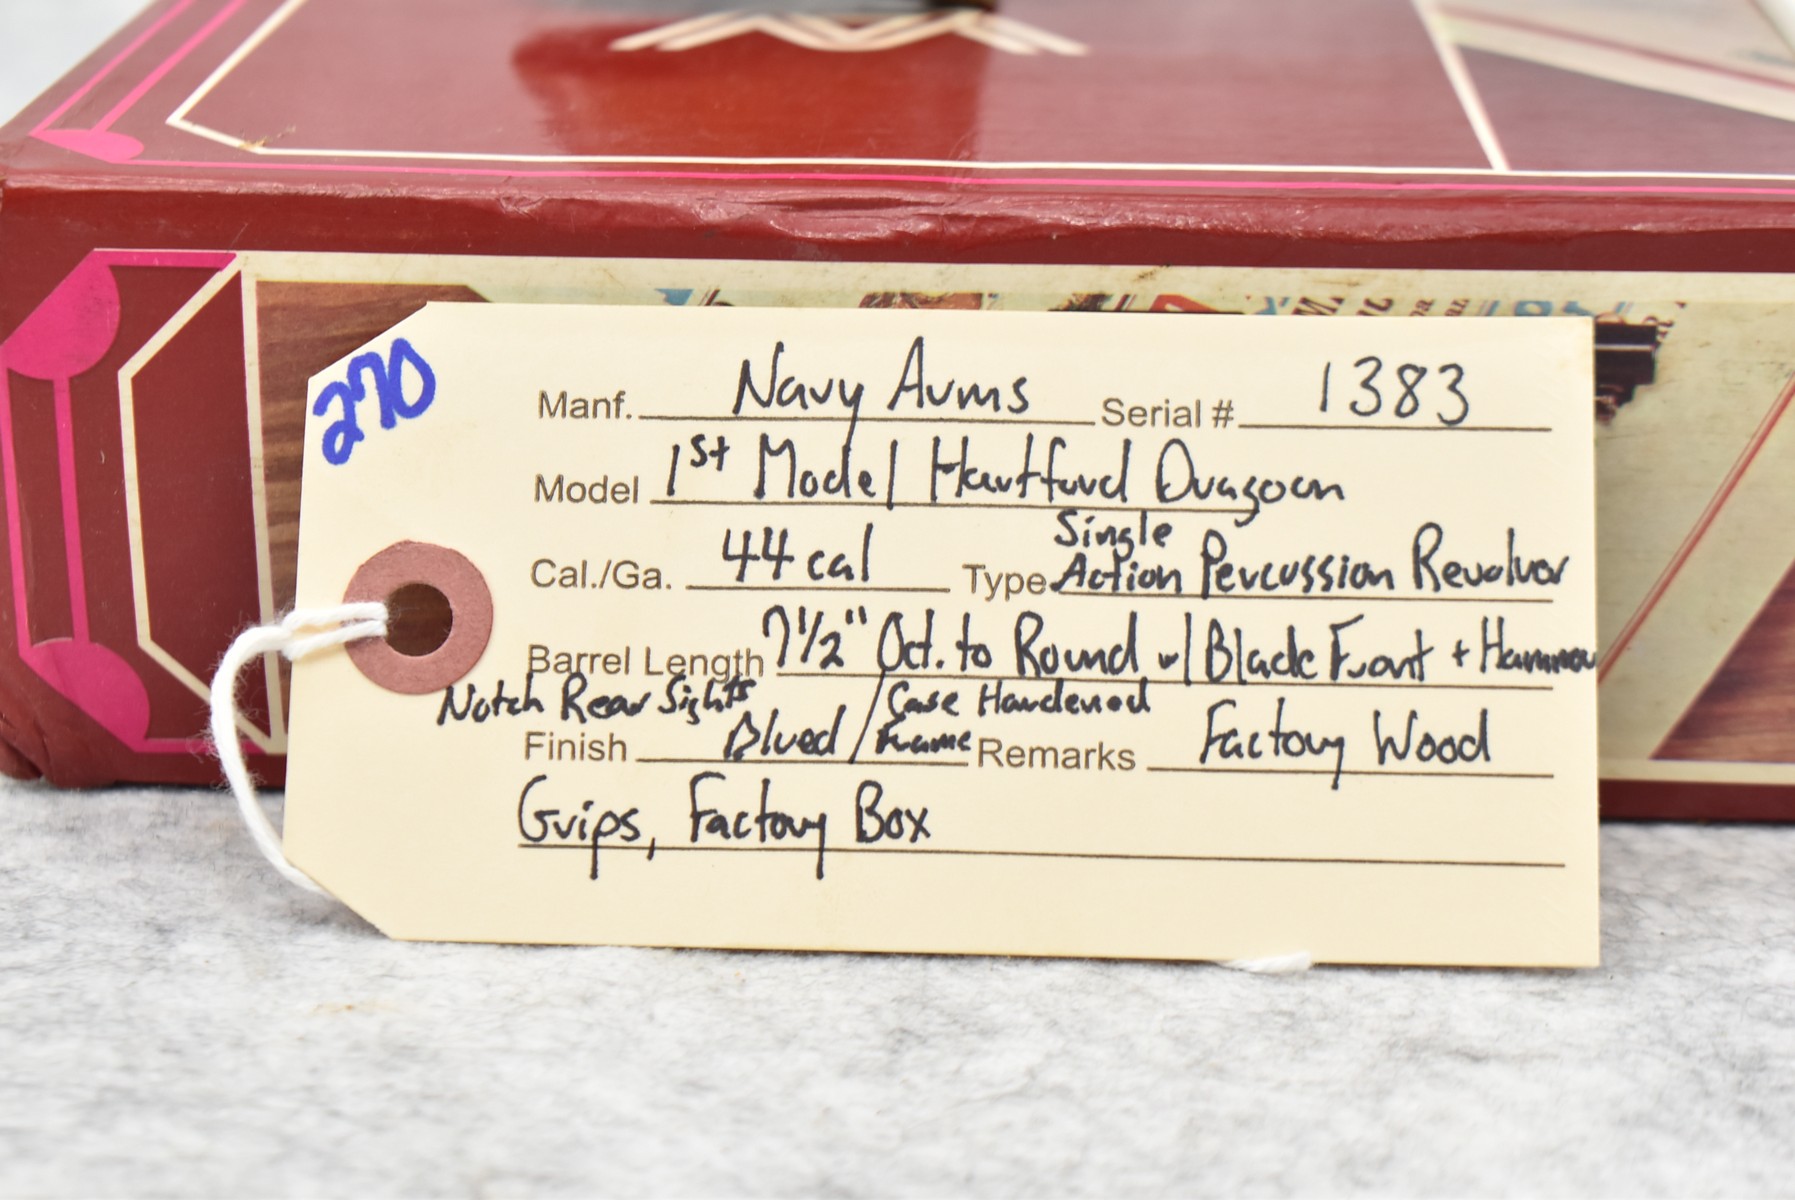 270
Manf. Navy Arms Serial # 1383
Model 1st Model Hartford Dragoon
Cal./Ga. 44 cal Type Single Action Percussion Revolver
Barrel Length 7 1/2" Oct. to Round w/ Blade Front + Hammer
Notch Rear Sights
Finish Blued / Case Hardened Frame Remarks Factory Wood
Grips, Factory Box